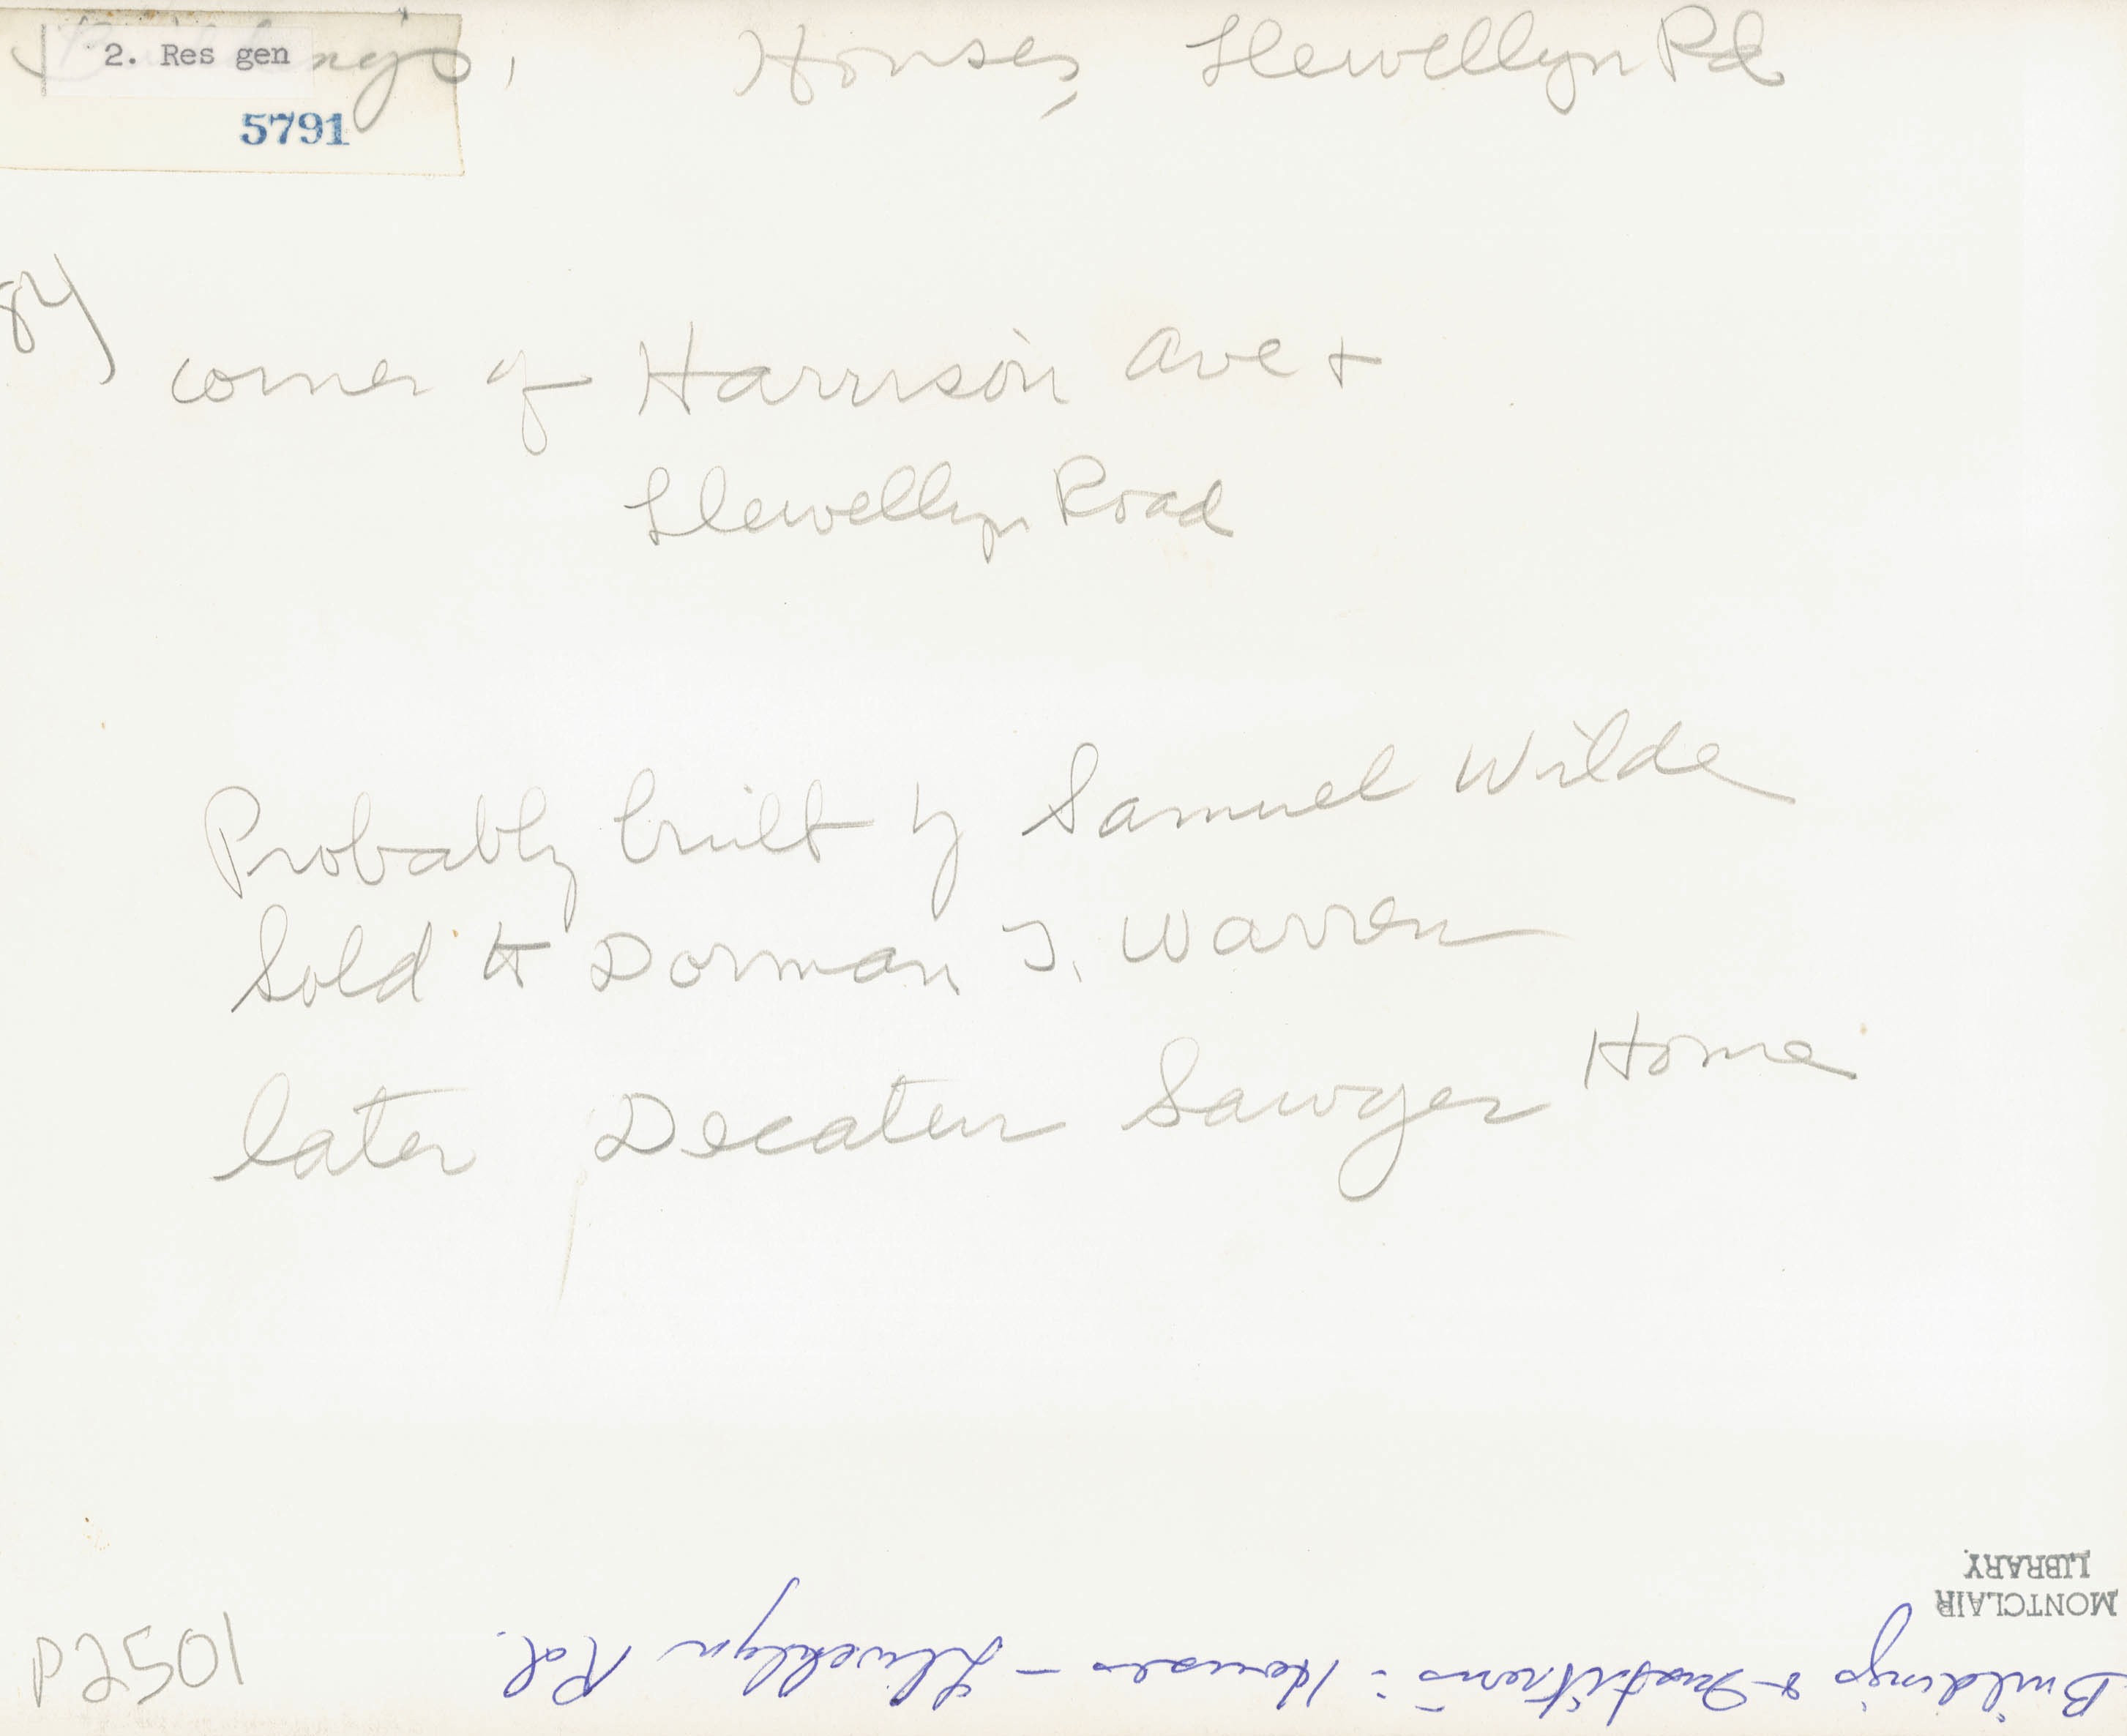 Buildings, Houses, Llewellyn Rd
2. Res gen
5791
84)
corner of Harrison Ave +
Llewellyn Road
Probably built by Samuel Wilde
Sold to Dorman T. Warren
later Decatur Sawyer Home
P2501
MONTCLAIR
LIBRARY
Buildings & Institutions: Houses - Llewellyn Rd.